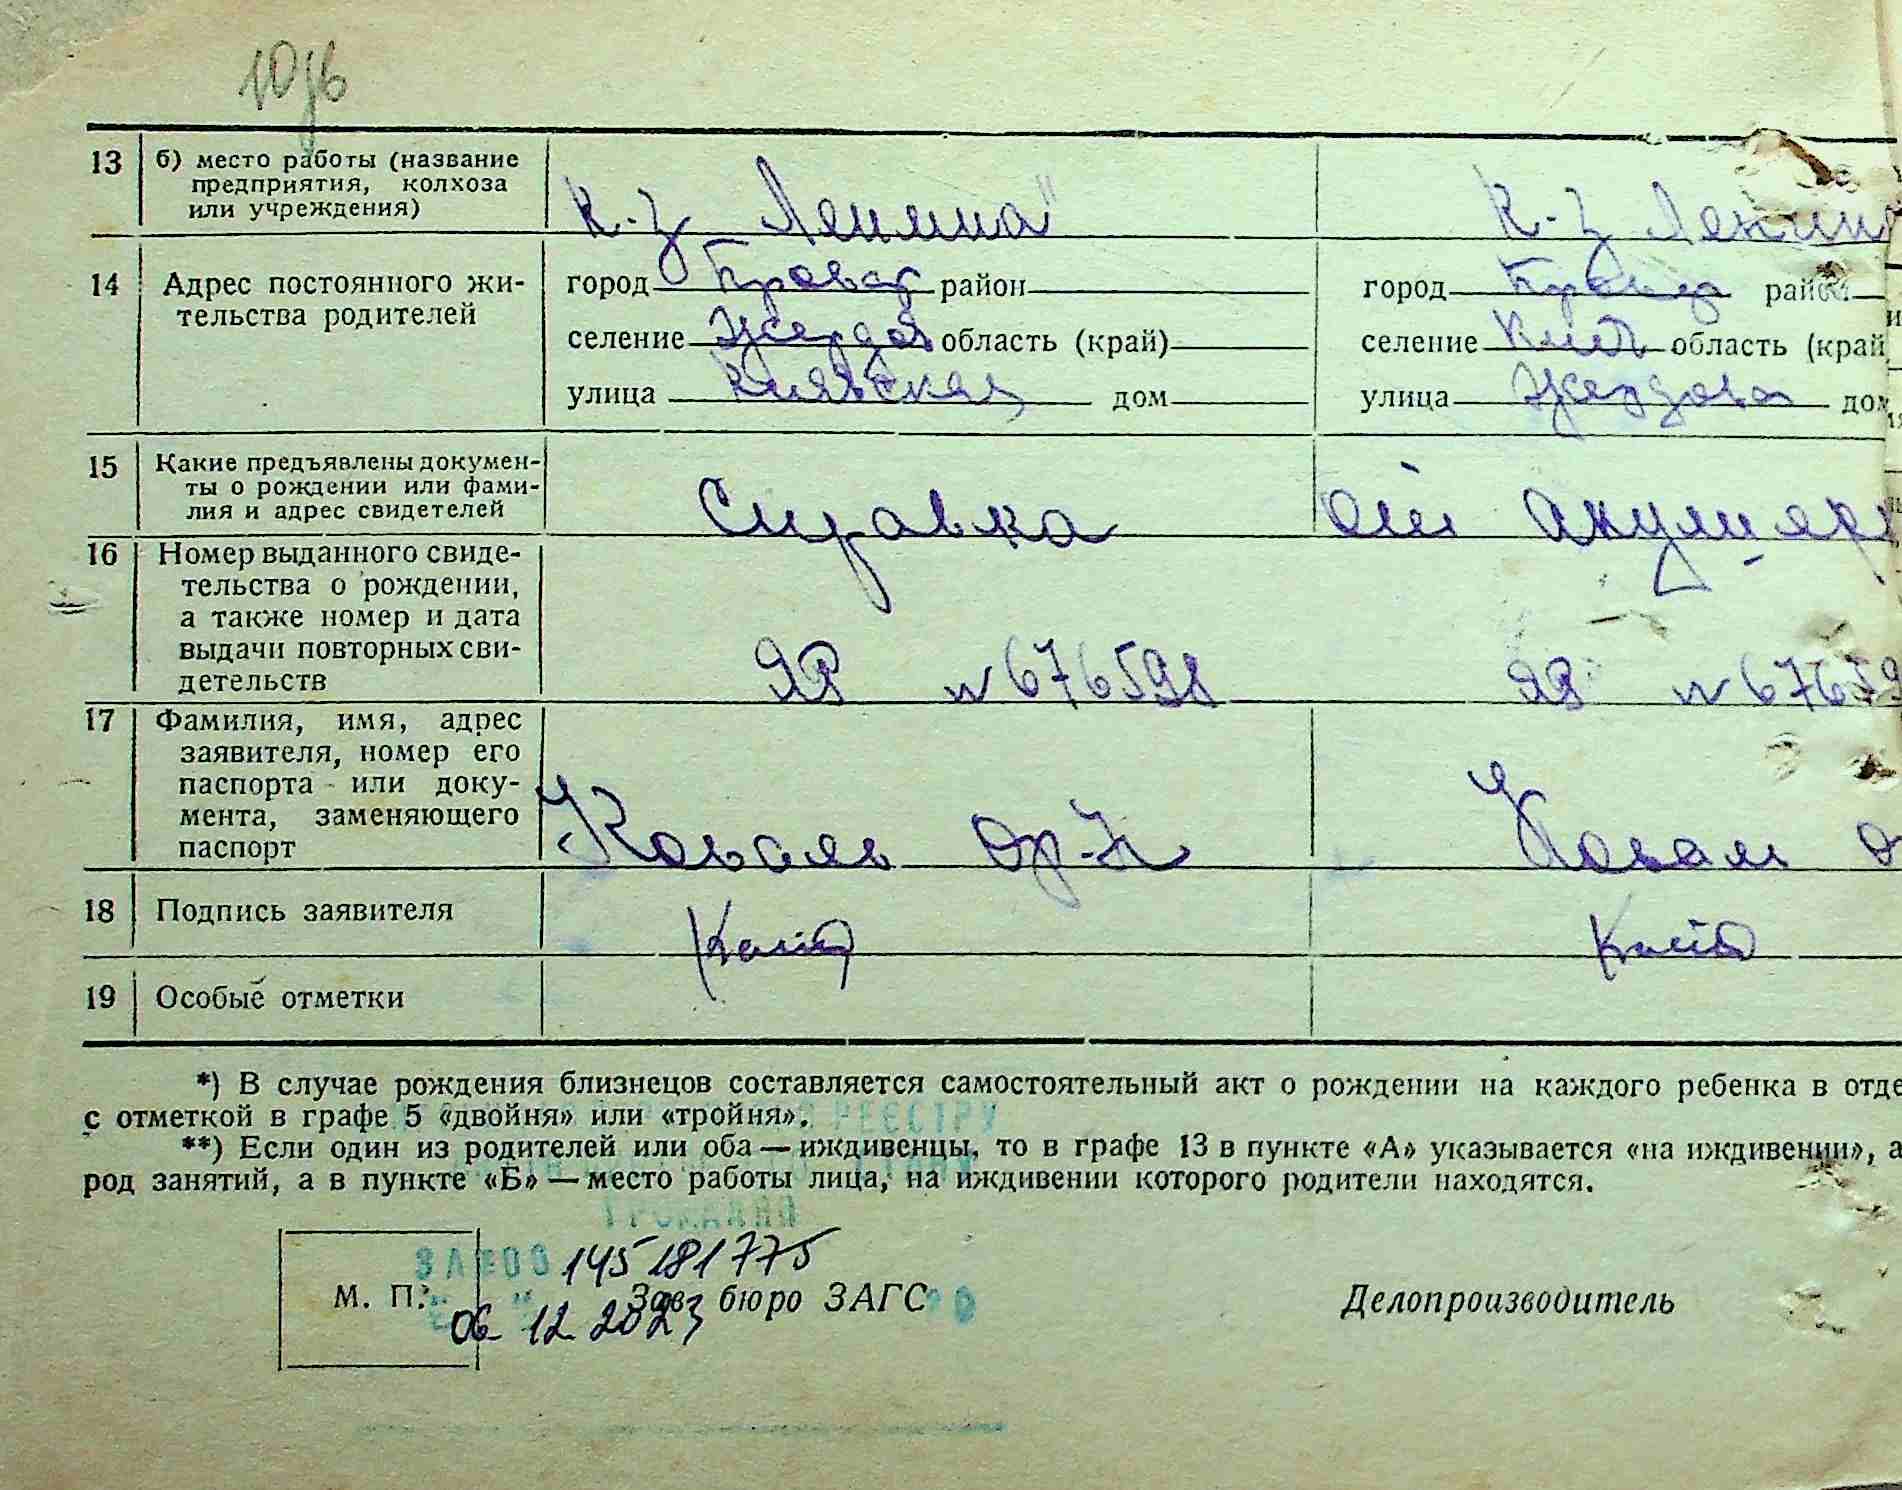 13 б) место работы (название предприятия, колхоза или учреждения) К-з Ленина" К-з Ленин
14 Адрес постоянного жительства родителей
город Бровар район город Бровар район
селение Жердова область (край) селение Киев область (край
улица Киевская дом улица Жердова дом
15 Какие предъявлены документы о рождении или фамилия и адрес свидетелей Справка от акушер
16 Номер выданного свидетельства о рождении, а также номер и дата выдачи повторных свидетельств ЯР № 676598 ЯР № 67659
17 Фамилия, имя, адрес заявителя, номер его паспорта или документа, заменяющего паспорт Коваль Коваль
18 Подпись заявителя
19 Особые отметки
*) В случае рождения близнецов составляется самостоятельный акт о рождении на каждого ребенка в отде
с отметкой в графе 5 «двойня» или «тройня».
РЕЄСТРУ
**) Если один из родителей или оба — иждивенцы, то в графе 13 в пункте «А» указывается «на иждивении», а
род занятий, а в пункте «Б» — место работы лица, на иждивении которого родители находятся.
ГРОМАДЯН
145181775
М. П. Зав. бюро ЗАГС Делопроизводитель
06 12 2023